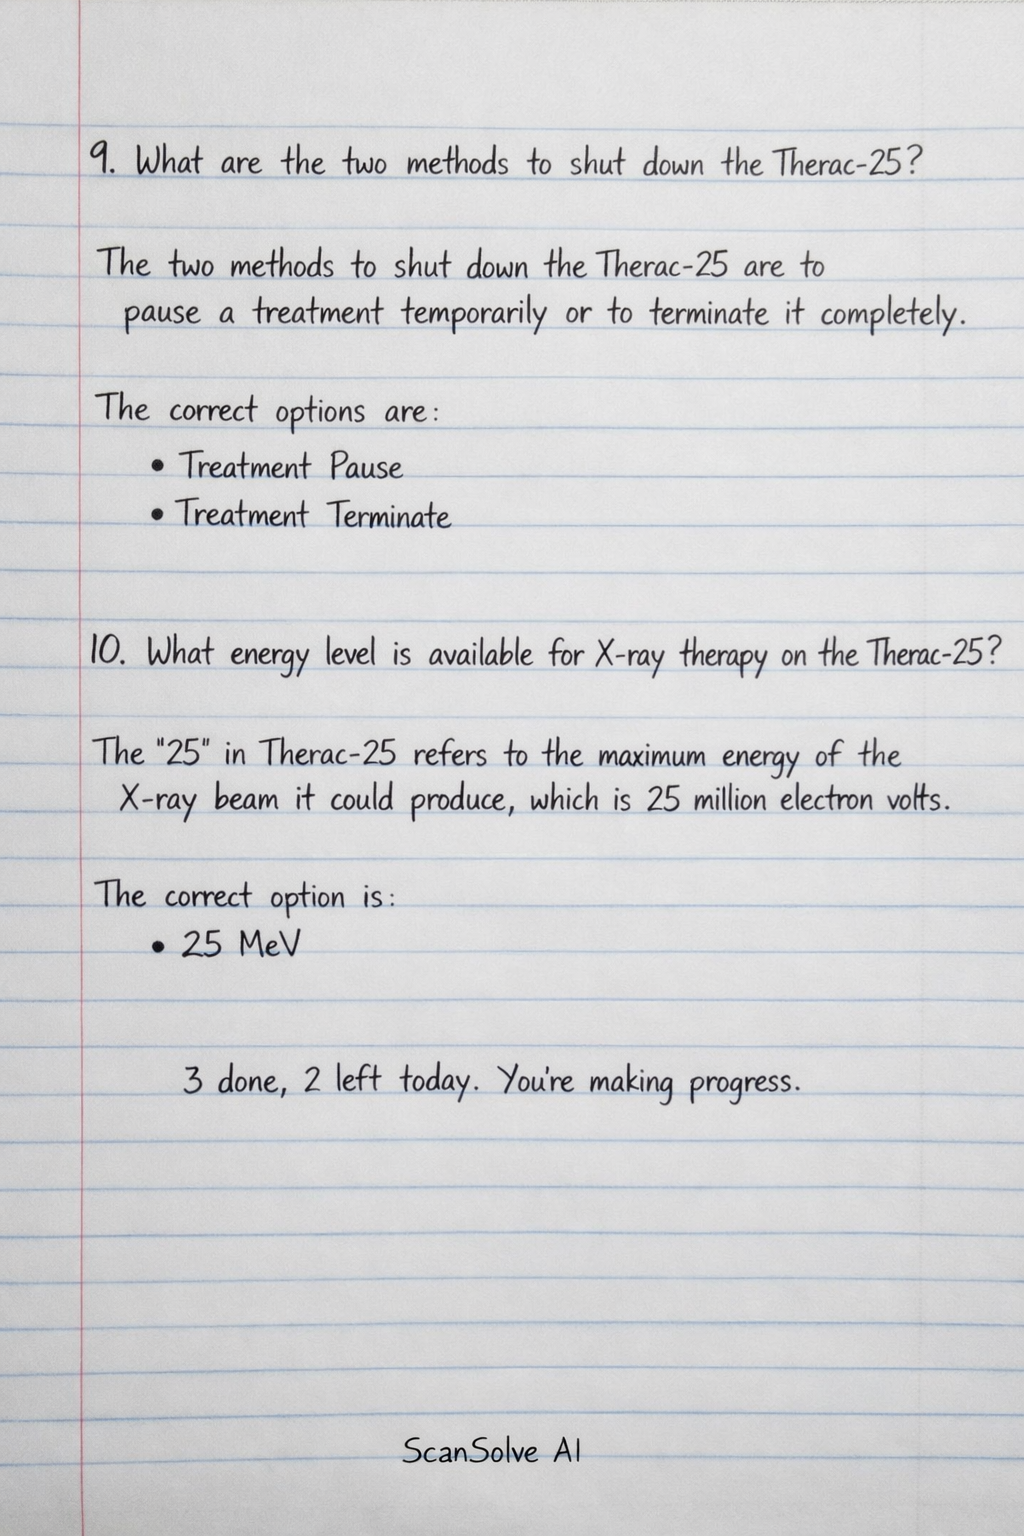 9. What are the two methods to shut down the Therac-25?
The two methods to shut down the Therac-25 are to
pause a treatment temporarily or to terminate it completely.
The correct options are:
• Treatment Pause
• Treatment Terminate
10. What energy level is available for X-ray therapy on the Therac-25?
The "25" in Therac-25 refers to the maximum energy of the
X-ray beam it could produce, which is 25 million electron volts.
The correct option is:
• 25 MeV
3 done, 2 left today. You're making progress.
ScanSolve AI